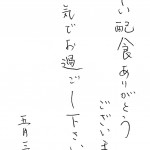 い配食ありがとう
ございま
気でお過ごし下さい
五月三